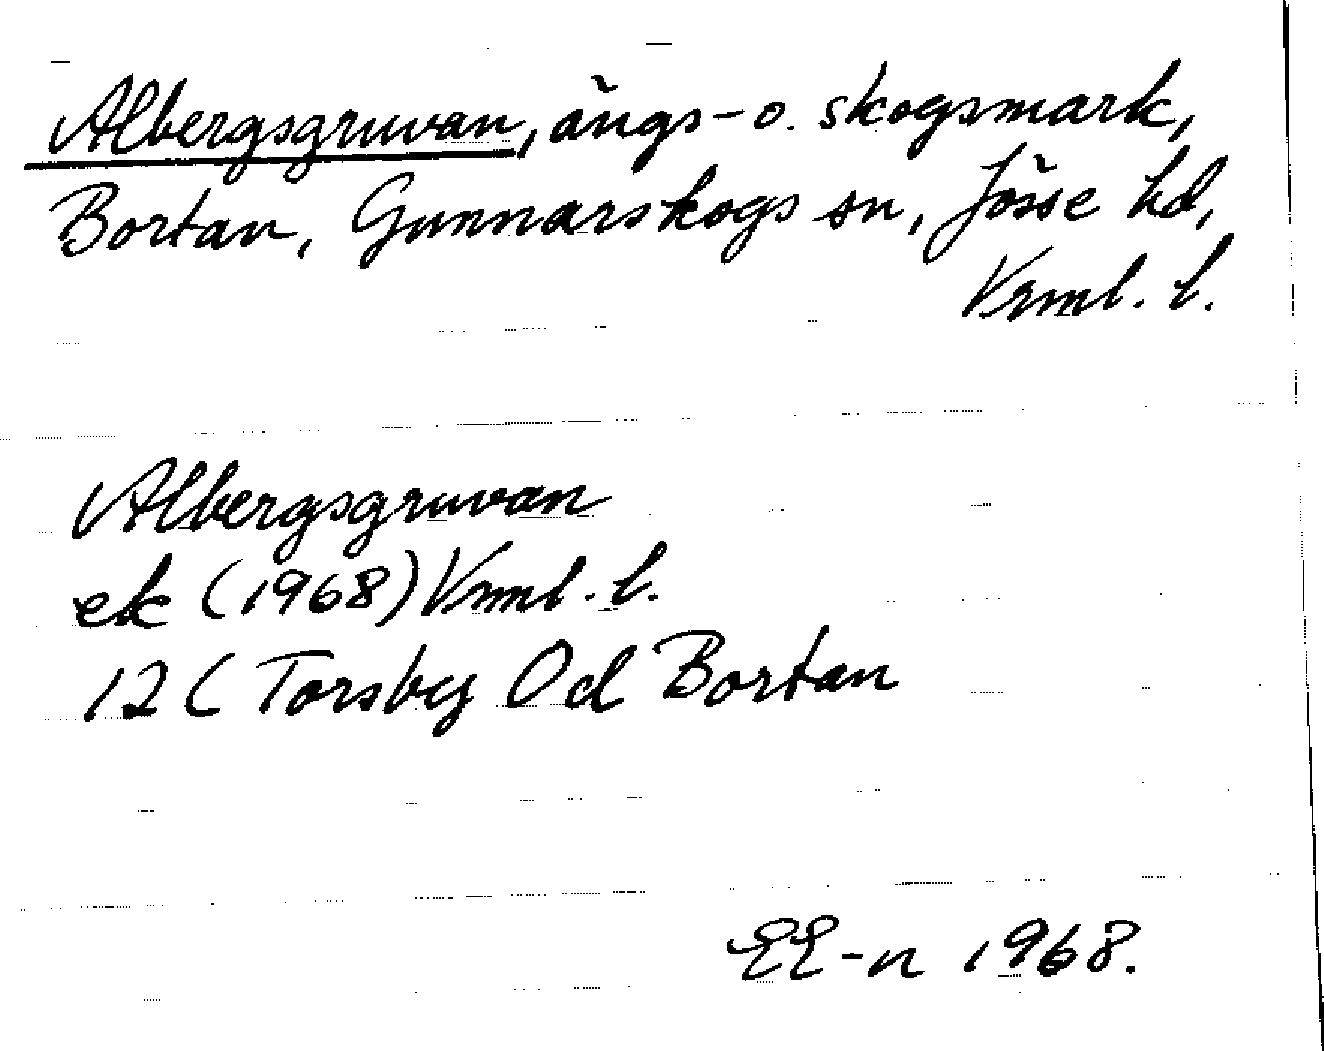 Albergsgruvan, ängs- o. skogsmark,
Bortan, Gunnarskogs sn, Jösse hd,
Vrml. l.
Albergsgruvan
ek (1968) Vrml. l.
12 C Torsby 0d Bortan
EE-n 1968.